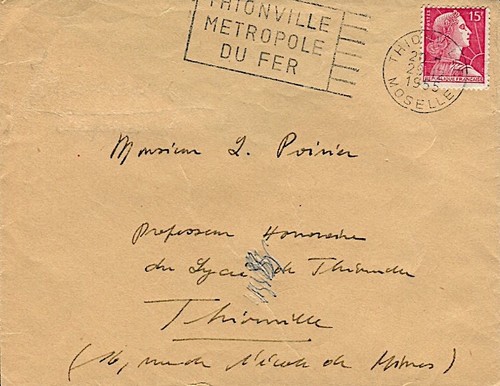 THIONVILLE
METROPOLE
DU FER
POSTES
15F
REPUBLIQUE FRANÇAISE
THIO
1955
MOSELLE
Monsieur L. Poirier
Professeur Honoraire
du Lycée de Thionville
Thionville
(16, rue de l'école de Mines)